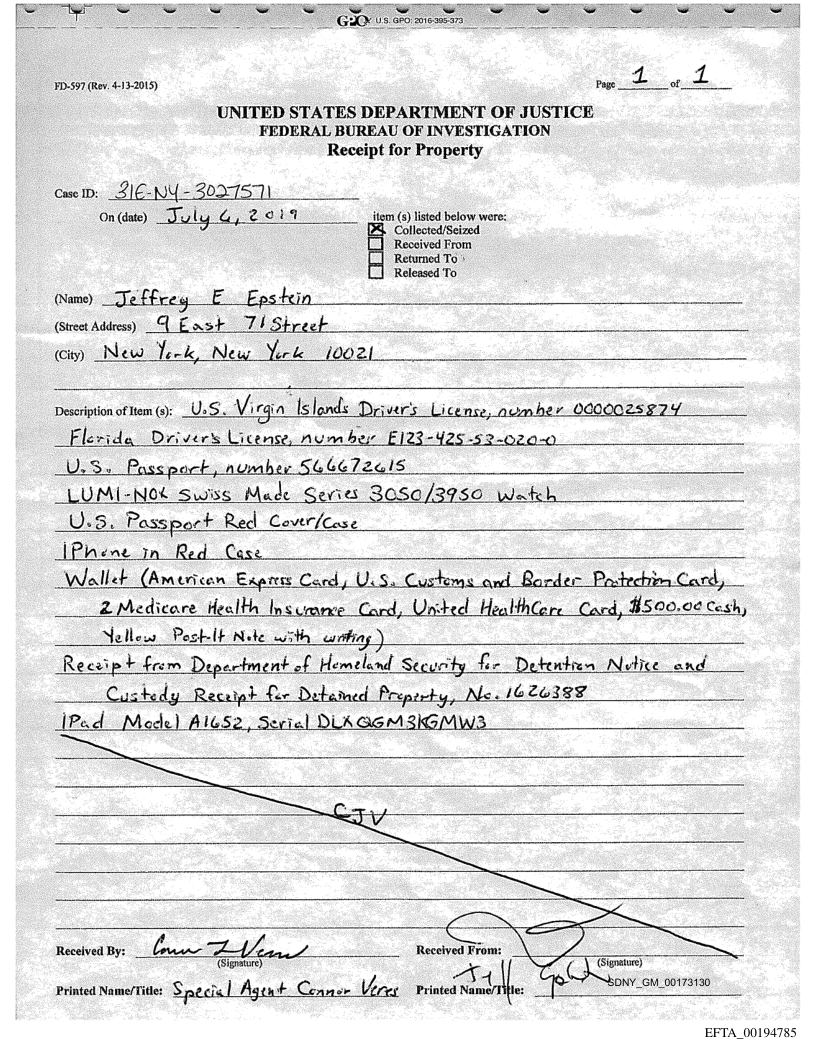 GPO U.S. GPO: 2016-395-373
FD-597 (Rev. 4-13-2015)
Page 1 of 1
UNITED STATES DEPARTMENT OF JUSTICE
FEDERAL BUREAU OF INVESTIGATION
Receipt for Property
Case ID: 31E-NY-3027571
On (date) July 6, 2019
item (s) listed below were:
Collected/Seized
Received From
Returned To
Released To
(Name) Jeffrey E Epstein
(Street Address) 9 East 71 Street
(City) New York, New York 10021
Description of Item (s): U.S. Virgin Islands Driver's License, number 0000025874
Florida Driver's License, number E123-425-53-020-0
U.S. Passport, number 566672615
LUMI-NOX Swiss Made Series 3050/3950 Watch
U.S. Passport Red Cover/Case
IPhone in Red Case
Wallet (American Express Card, U.S. Customs and Border Protection Card,
2 Medicare Health Insurance Card, United HealthCare Card, $500.00 Cash,
Yellow Post-It Note with writing)
Receipt from Department of Homeland Security for Detention Notice and
Custody Receipt for Detained Property, No. 1626388
IPad Model A1652, Serial DLXQGM3KGMW3
CJV
Received By:
(Signature)
Received From:
(Signature)
Printed Name/Title: Special Agent Connor Veres
Printed Name/Title: Jeff
SDNY_GM_00173130
EFTA_00194785